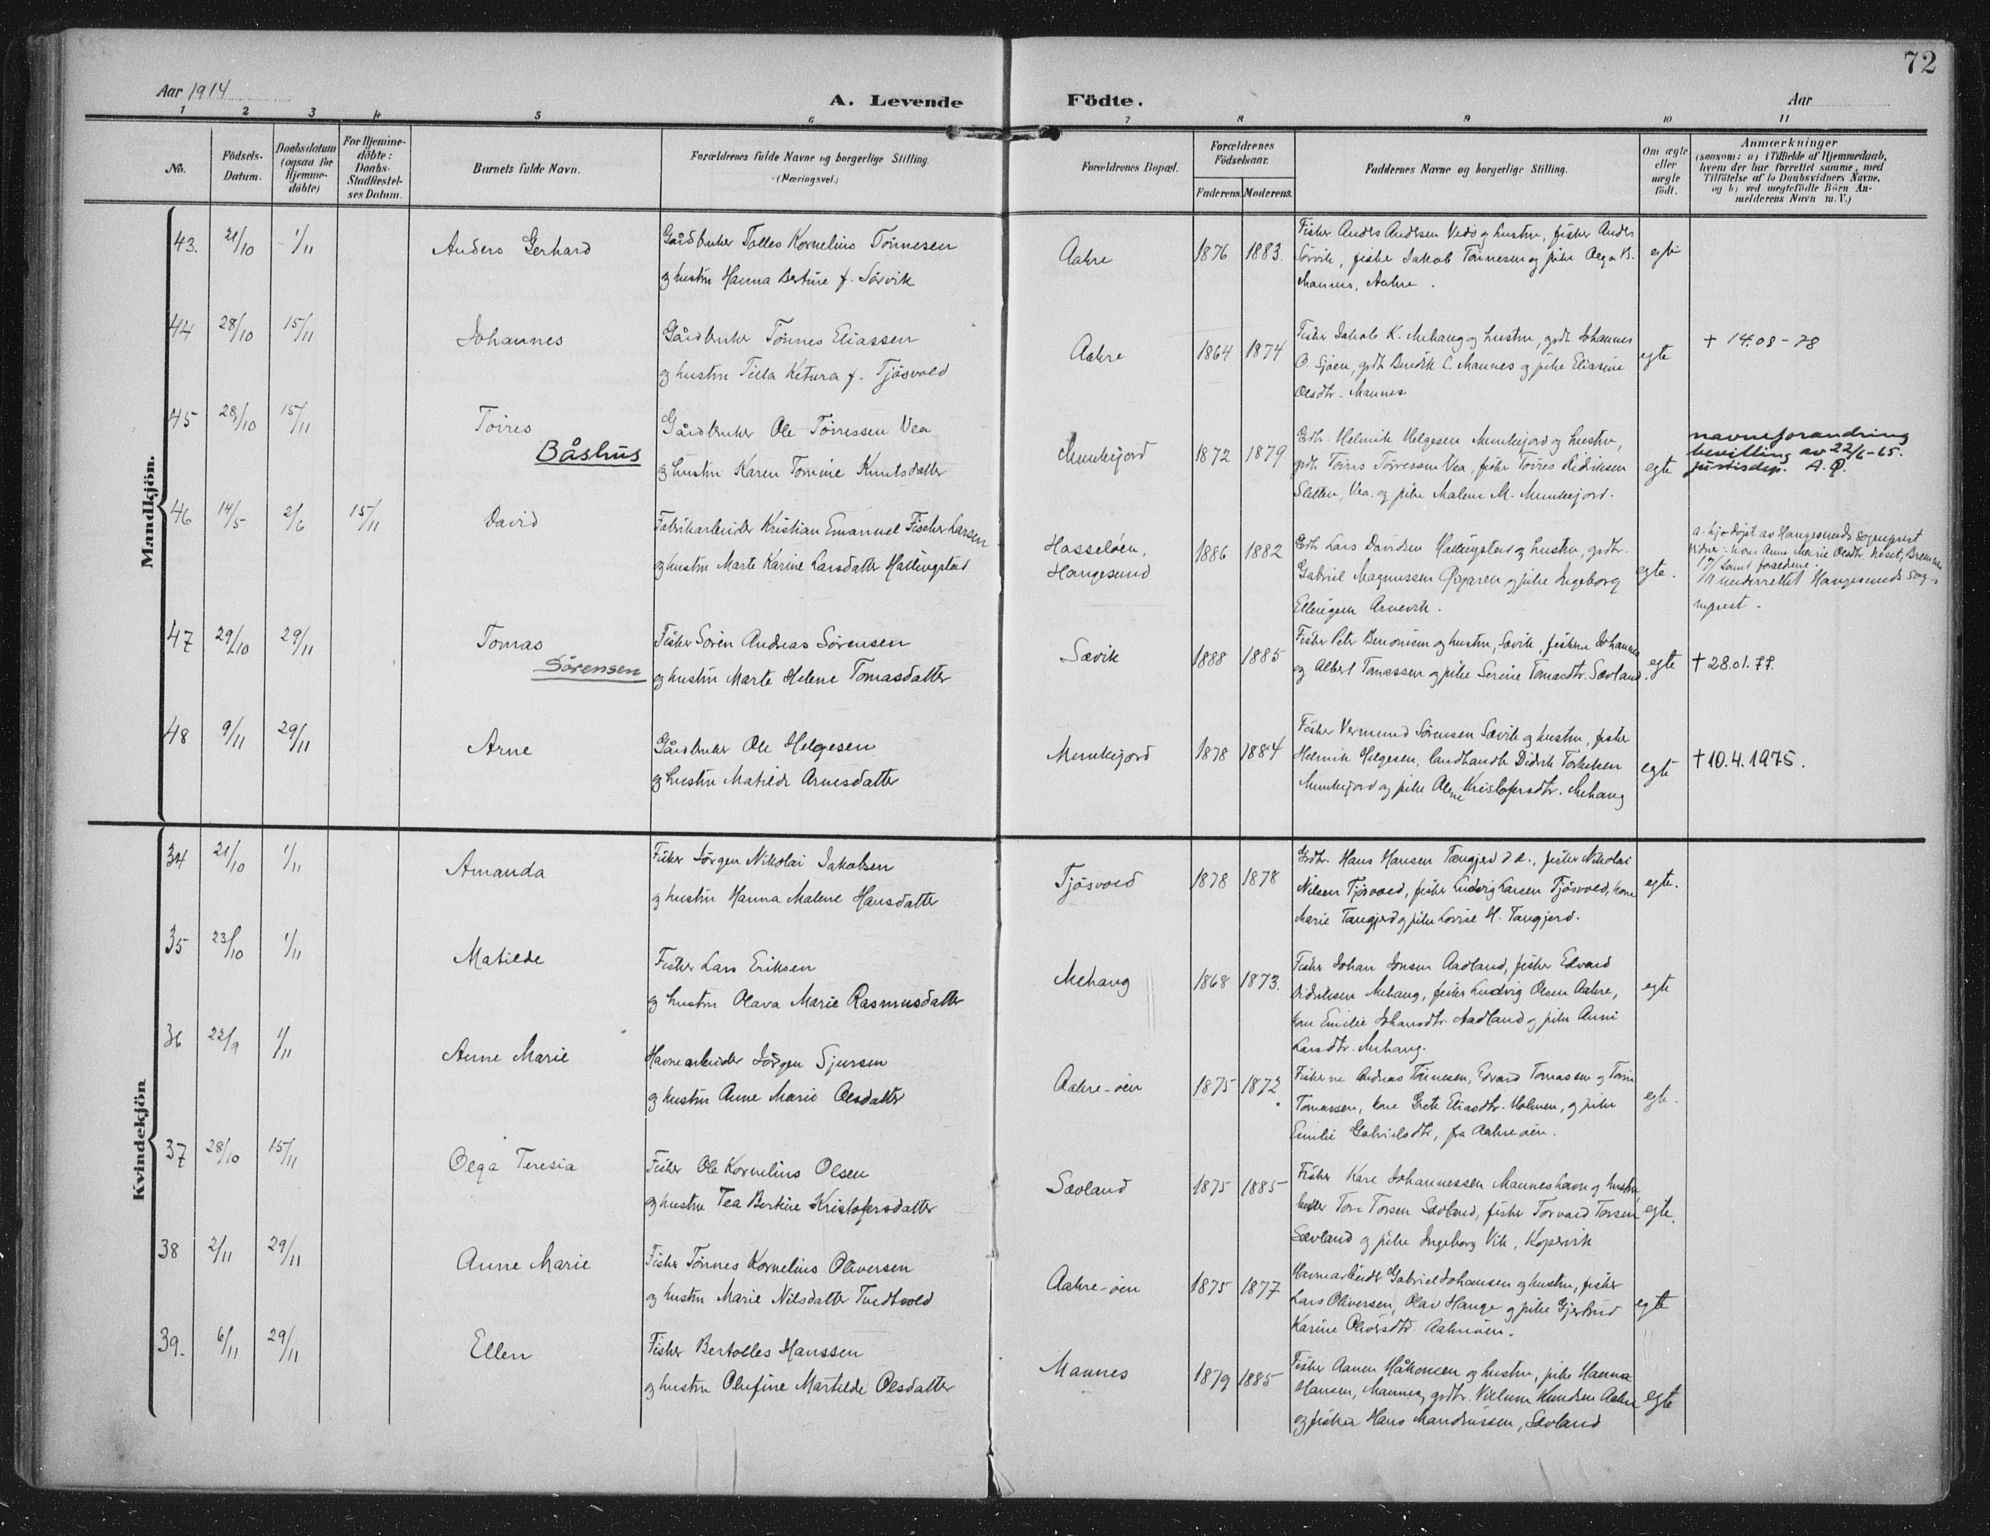 72
Aar 1914
A. Levende Födte.
Aar
1 2 3 4 5 6 7 8 9 10 11
No.
Födsels-
Datum.
Daabsdatum
(ogsaa for
Hjemme-
döbte)
For Hjemme-
döbte:
Daabs-
Stadfæstel-
ses Datum.
Barnets fulde Navn.
Forældrenes fulde Navne og borgerlige Stilling.
(Næringsvei.)
Forældrenes Bopæl.
Forældrenes
Födselsaar.
Faderens. Moderens.
Faddernes Navne og borgerlige Stilling.
Om ægte
eller
uægte
födt.
Anmærkninger
(saasom: a) i Tilfælde af Hjemmedaab,
hvem der har forrettet samme, med
Tilföielse af to Daabsvidners Navne,
og b) ved uægtefödte Börn An-
melderens Navn m. V.)
Mandkjön.
43. 21/10 1/11 Anders Gerhard
Gårdbruker Tolles Kornelius Tönnesen
og hustru Hanna Bertine f. Sörvik
Aakre 1876 1883.
Fisker Anders Andersen Vedö og hustru, fisker Anders
Sörvik, fisker Jakob Tönnesen og pike Olga B.
Mannes, Aakre.
egte
44 28/10 15/11 Johannes
Gårdbruker Tönnes Eliassen
og hustru Tilla Ketura f. Tjösvold
Aakre 1864 1874
Fisker Jakob K. Mehaug og hustru, grdt Johannes
O. Sjöen, grdt. Bendik L. Mannes og pike Eliasine
Olsdtr. Mannes
egte
+ 14.08-78
45 28/10 15/11 Torres
Båshus
Gårdbruker Ole Törressen Vea
og hustru Karen Tomine Knutsdatter
Munkejord 1872 1879
Grdbr. Helmik Helgesen Munkejord og hustru,
grdt. Törres Törressen Vea, fisker Törres Didriksen
Sletten, Vea og pike Malene M. Munkejord.
egte
navneforandring
bevilling av 22/6-65.
justisdep. A.Q.
46 14/5 2/6 15/11 David
Fabrikarbeider Kristian Emanuel Fischer Larsen
og hustru Marte Karine Larsdatter Hallingstad
Hasselöen,
Haugesund
1886 1882
Grdbr. Lars Davidsen Hallingstad og hustru, grdbr.
Gabriel Magnussen og pike Ingeborg
Arnevik.
egte.
a. hjemdöpt av Haugesunds sogneprest
Vidner: kone Anne Marie Olsdtr.
samt forældrene.
underrettet Haugesunds sog-
neprest.
47 29/10 29/11 Tomas
Sörensen
Fisker Sören Andreas Sörensen
og hustru Marte Helene Tomasdatter
Sævik 1888 1885
Fisker Peter og hustru, Sævik, fiskerne Johannes
og Albert Tomassen og pike Serine Tomasdtr. Sævland.
egte
+ 28.01.77.
48 9/11 29/11 Arne
Gårdbruker Ole Helgesen
og hustru Matilde Arnesdatter
Munkejord 1878 1884
Fisker Vermund Sörensen Sævik og hustru, fisker
Helmik Helgesen, landhandler Didrik Torkelsen
Munkejord og pike Kristofersdtr. Mehaug
egte
+ 10.4.1975.
Kvindekjön
34 21/10 1/11 Amanda
Fisker Jörgen Nikolai Jakobsen
og hustru Hanna Malene Hansdatter
Tjösvold 1878 1878
Grdbr. Hans Hansen Tangjerd d.e., fisker Nikolai
Nilsen Tjösvold, fisker Ludvig Larsen Tjösvold, kone
Marie Tangjerd og pike Lovise H. Tangjerd.
egte.
35 23/10 1/11 Matilde
Fisker Lars Eriksen
og hustru Olava Marie Rasmusdatter
Mehaug 1868 1873.
Fisker Johan Jonsen Aadland, fisker Edvard
Didriksen Mehaug, fisker Ludvig Olsen Aakre,
kone Emilie Johansdtr. Aadland og pike Anni
Larsdtr. Mehaug.
egte
36 22/9 1/11 Anne Marie
Havnearbeider Jörgen Sjursen
og hustru Anne Marie Olsdatter
Aakre-öen 1875 1872
Fiskerne Andreas Tönnesen, Edvard Tomassen og
Tomassen, kone Grete Eliasdtr. Holmen, og pike
Emilie Gabrielsdtr, fra Aakreöen.
egte.
37 28/10 15/11 Olga Teresia
Fisker Ole Kornelius Olsen
og hustru Tea Bertine Kristofersdatter
Sævland 1875 1885
Fisker Kare Johannessen Manneshavn og hustru,
Tore Torsen Sævland, fisker Torvald Torsen
Sævland og pike Ingeborg Vik, Kopervik
egte.
38 2/11 29/11 Anne Marie
Fisker Tönnes Kornelius Oliversen
og hustru Marie Nilsdatter Tvedtvold
Aakre-öen 1875 1877
Havnearbeider Gabriel Johansen og hustru, fisker
Lars Oliversen, Olav Hauge og pike Gjertrud
Karine Olversdtr Aakreöen.
egte
39. 6/11 29/11 Ellen
Fisker Bertolles Hanssen
og hustru Olufine Martilde Olsdatter
Mannes 1879 1885
Fisker Aanen Håkonsen og hustru, pike Hanna
Hansen, Mannes, grdbr. Villum Knudsen Aakre
og fisker Hans Mandrussen, Sævland
egte